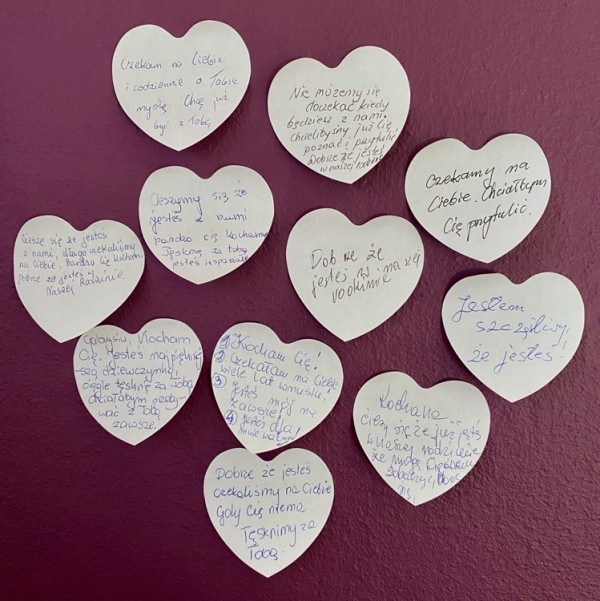 Czekam na Ciebie
i codziennie o Tobie
myślę. Chcę już
być z Tobą
Nie możemy się
doczekać kiedy
będziesz z nami.
Chcielibyśmy już Cię
poznać i przytulić.
Dobrze że jesteś
w naszej rodzinie
Czekamy na
Ciebie. Chciałbym
Cię przytulić.
Cieszymy się że
jesteś z nami
bardzo cię kochamy
Tęsknię za tobą
jesteś wspaniała
Cieszę się że jesteś
z nami, długo czekaliśmy
na Ciebie. Bardzo Cię kocham
że jesteś w
Naszej Rodzinie.
Dobrze że
jesteś w naszej
rodzinie
Jestem
szczęśliwy,
że jesteś!
Kocham
Cię. Jesteś najpiękniej-
szą dziewczynką,
ciągle tęsknię za Tobą
chciałabym
z Tobą
zawsze.
① Kocham Cię!
② Czekałam na Ciebie
wiele lat wnusiu!
③ Jesteś mój na
zawsze!
④ Jesteś dla
mnie ważny!
Kochana
cieszę się że już jesteś
w Naszej rodzinie
że mogę
Dobrze że jesteś
czekaliśmy na Ciebie
Gdy Cię niema
Tęsknimy za
Tobą.